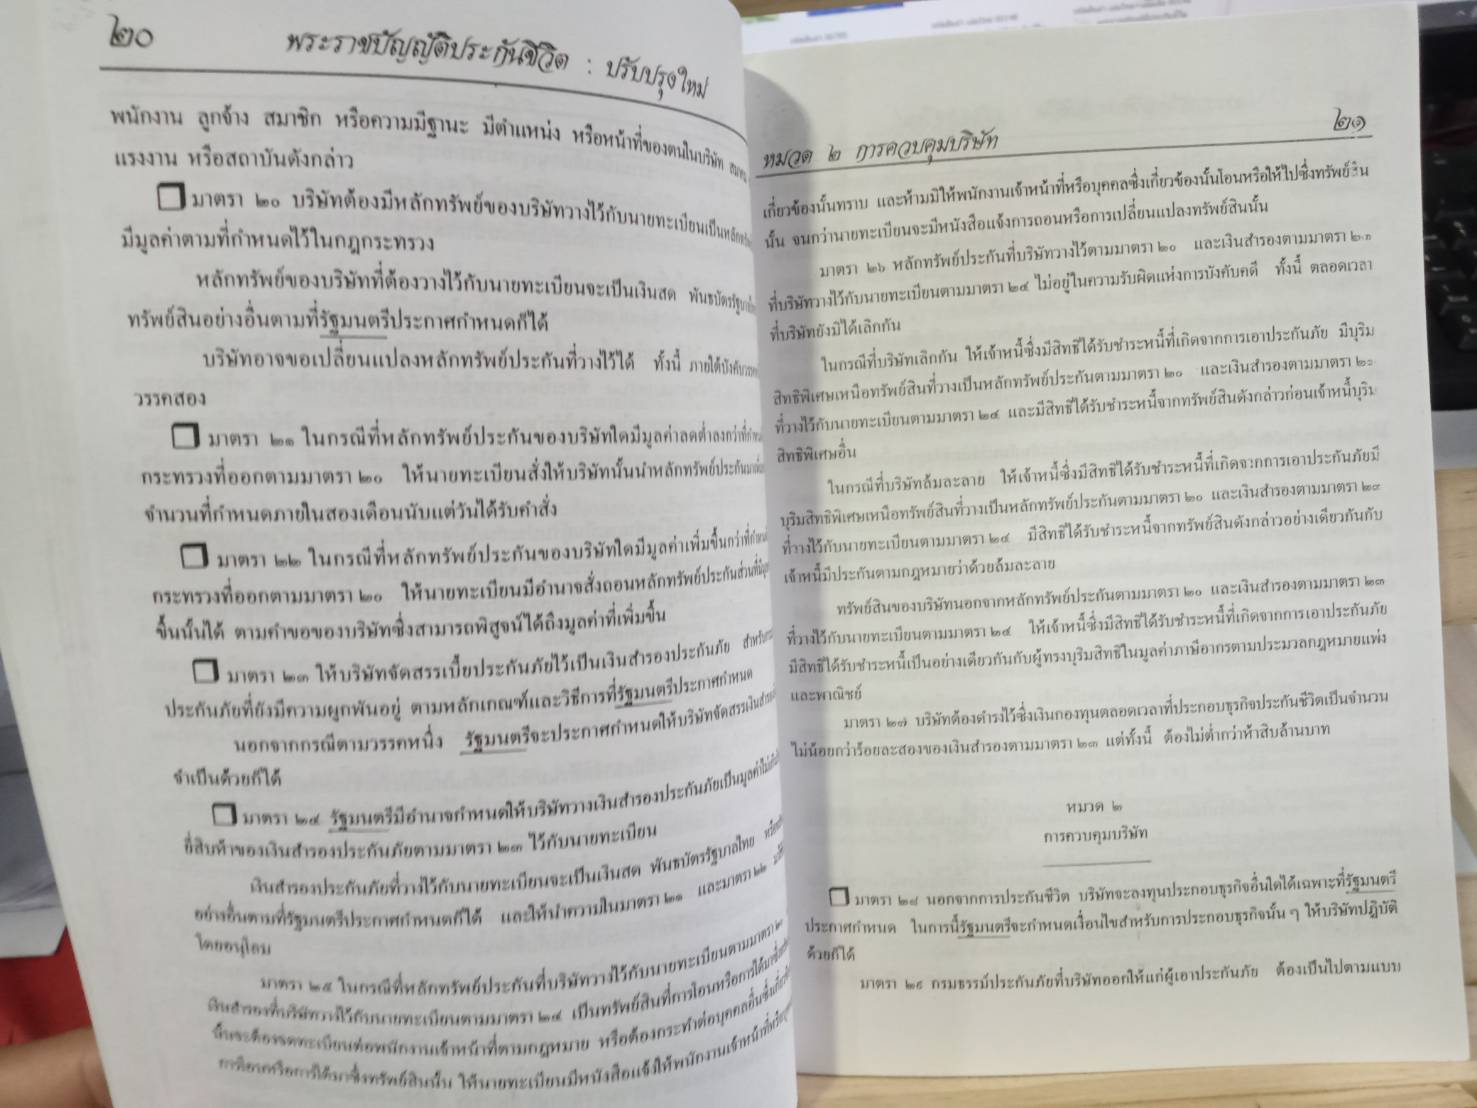 ๒๐
พระราชบัญญัติประกันชีวิต : ปรับปรุงใหม่
พนักงาน ลูกจ้าง สมาชิก หรือความมีฐานะ มีตำแหน่ง หรือหน้าที่ของตนในบริษัท สมาคม
แรงงาน หรือสถาบันดังกล่าว
มาตรา ๒๐ บริษัทต้องมีหลักทรัพย์ของบริษัทวางไว้กับนายทะเบียนเป็นหลัก
มีมูลค่าตามที่กำหนดไว้ในกฎกระทรวง
หลักทรัพย์ของบริษัทที่ต้องวางไว้กับนายทะเบียนจะเป็นเงินสด พันธบัตร
ทรัพย์สินอย่างอื่นตามที่รัฐมนตรีประกาศกำหนดก็ได้
บริษัทอาจขอเปลี่ยนแปลงหลักทรัพย์ประกันที่วางไว้ได้ ทั้งนี้ ภายใต้บังคับ
วรรคสอง
มาตรา ๒๑ ในกรณีที่หลักทรัพย์ประกันของบริษัทใดมีมูลค่าลดต่ำลงกว่าที่
กระทรวงที่ออกตามมาตรา ๒๐ ให้นายทะเบียนสั่งให้บริษัทนั้นนำหลักทรัพย์ประกันมา
จำนวนที่กำหนดภายในสองเดือนนับแต่วันได้รับคำสั่ง
มาตรา ๒๒ ในกรณีที่หลักทรัพย์ประกันของบริษัทใดมีมูลค่าเพิ่มขึ้นกว่าที่
กระทรวงที่ออกตามมาตรา ๒๐ ให้นายทะเบียนมีอำนาจสั่งถอนหลักทรัพย์ประกันส่วนที่
ขึ้นนั้นได้ ตามคำขอของบริษัทซึ่งสามารถพิสูจน์ได้ถึงมูลค่าที่เพิ่มขึ้น
มาตรา ๒๓ ให้บริษัทจัดสรรเบี้ยประกันภัยไว้เป็นเงินสำรองประกันภัย สำหรับ
ประกันภัยที่ยังมีความผูกพันอยู่ ตามหลักเกณฑ์และวิธีการที่รัฐมนตรีประกาศกำหนด
นอกจากกรณีตามวรรคหนึ่ง รัฐมนตรีจะประกาศกำหนดให้บริษัทจัดสรรเงินสำรอง
จำเป็นด้วยก็ได้
มาตรา ๒๔ รัฐมนตรีมีอำนาจกำหนดให้บริษัทวางเงินสำรองประกันภัยเป็นมูลค่าไม่
ยี่สิบห้าของเงินสำรองประกันภัยตามมาตรา ๒๓ ไว้กับนายทะเบียน
เงินสำรองประกันภัยที่วางไว้กับนายทะเบียนจะเป็นเงินสด พันธบัตรรัฐบาลไทย
อย่างอื่นตามที่รัฐมนตรีประกาศกำหนดก็ได้ และให้นำความในมาตรา ๒๑ และมาตรา ๒๒
โดยอนุโลม
มาตรา ๒๕ ในกรณีที่หลักทรัพย์ประกันที่บริษัทวางไว้กับนายทะเบียนตามมาตรา ๒๐
เงินสำรองที่บริษัทวางไว้กับนายทะเบียนตามมาตรา ๒๔ เป็นทรัพย์สินที่การโอนหรือการได้มา
นั้นจะต้องจดทะเบียนต่อพนักงานเจ้าหน้าที่ตามกฎหมาย หรือต้องกระทำต่อบุคคลอื่นซึ่ง
การโอนหรือการได้มาซึ่งทรัพย์สินนั้น ให้นายทะเบียนมีหนังสือแจ้งให้พนักงานเจ้าหน้าที่
หมวด ๒ การควบคุมบริษัท
๒๑
เกี่ยวข้องนั้นทราบ และห้ามมิให้พนักงานเจ้าหน้าที่หรือบุคคลซึ่งเกี่ยวข้องนั้นโอนหรือให้ไปซึ่งทรัพย์สิน
นั้น จนกว่านายทะเบียนจะมีหนังสือแจ้งการถอนหรือการเปลี่ยนแปลงทรัพย์สินนั้น
มาตรา ๒๖ หลักทรัพย์ประกันที่บริษัทวางไว้ตามมาตรา ๒๐ และเงินสำรองตามมาตรา ๒๓
ที่บริษัทวางไว้กับนายทะเบียนตามมาตรา ๒๔ ไม่อยู่ในความรับผิดแห่งการบังคับคดี ทั้งนี้ ตลอดเวลา
ที่บริษัทยังมิได้เลิกกัน
ในกรณีที่บริษัทเลิกกัน ให้เจ้าหนี้ซึ่งมีสิทธิได้รับชำระหนี้ที่เกิดจากการเอาประกันภัย มีบุริม
สิทธิพิเศษเหนือทรัพย์สินที่วางเป็นหลักทรัพย์ประกันตามมาตรา ๒๐ และเงินสำรองตามมาตรา ๒๓
ที่วางไว้กับนายทะเบียนตามมาตรา ๒๔ และมีสิทธิได้รับชำระหนี้จากทรัพย์สินดังกล่าวก่อนเจ้าหนี้บุริม
สิทธิพิเศษอื่น
ในกรณีที่บริษัทล้มละลาย ให้เจ้าหนี้ซึ่งมีสิทธิได้รับชำระหนี้ที่เกิดจากการเอาประกันภัยมี
บุริมสิทธิพิเศษเหนือทรัพย์สินที่วางเป็นหลักทรัพย์ประกันตามมาตรา ๒๐ และเงินสำรองตามมาตรา ๒๓
ที่วางไว้กับนายทะเบียนตามมาตรา ๒๔ มีสิทธิได้รับชำระหนี้จากทรัพย์สินดังกล่าวอย่างเดียวกันกับ
เจ้าหนี้มีประกันตามกฎหมายว่าด้วยล้มละลาย
ทรัพย์สินของบริษัทนอกจากหลักทรัพย์ประกันตามมาตรา ๒๐ และเงินสำรองตามมาตรา ๒๓
ที่วางไว้กับนายทะเบียนตามมาตรา ๒๔ ให้เจ้าหนี้ซึ่งมีสิทธิได้รับชำระหนี้ที่เกิดจากการเอาประกันภัย
มีสิทธิได้รับชำระหนี้เป็นอย่างเดียวกันกับผู้ทรงบุริมสิทธิในมูลค่าภาษีอากรตามประมวลกฎหมายแพ่ง
และพาณิชย์
มาตรา ๒๗ บริษัทต้องดำรงไว้ซึ่งเงินกองทุนตลอดเวลาที่ประกอบธุรกิจประกันชีวิตเป็นจำนวน
ไม่น้อยกว่าร้อยละสองของเงินสำรองตามมาตรา ๒๓ แต่ทั้งนี้ ต้องไม่ต่ำกว่าห้าสิบล้านบาท
หมวด ๒
การควบคุมบริษัท
มาตรา ๒๘ นอกจากการประกันชีวิต บริษัทจะลงทุนประกอบธุรกิจอื่นใดได้เฉพาะที่รัฐมนตรี
ประกาศกำหนด ในการนี้รัฐมนตรีจะกำหนดเงื่อนไขสำหรับการประกอบธุรกิจนั้น ๆ ให้บริษัทปฏิบัติ
ด้วยก็ได้
มาตรา ๒๙ กรมธรรม์ประกันภัยที่บริษัทออกให้แก่ผู้เอาประกันภัย ต้องเป็นไปตามแบบ